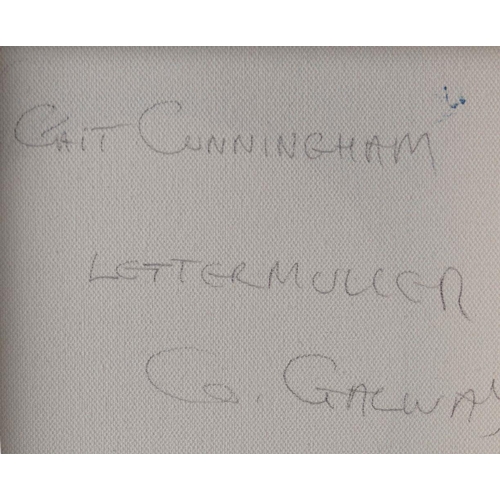 CAIT CUNNINGHAM
LETTERMULLER
Co. GALWAY